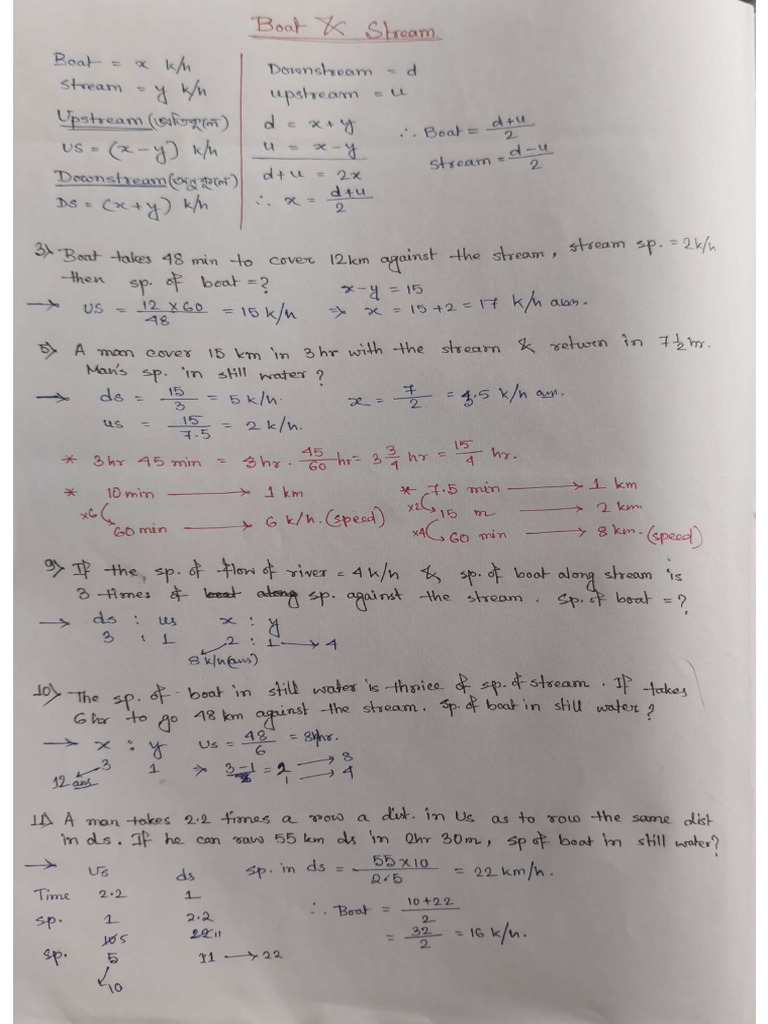 Boat & Stream
Boat = x k/h
Stream = y k/h
Upstream (প্রতিকূলে)
US = (x-y) k/h
Downstream (অনুকূলে)
DS = (x+y) k/h
Downstream = d
upstream = u
d = x+y
u = x-y
d+u = 2x
∴ x = d+u/2
∴ Boat = d+u/2
stream = d-u/2
3) Boat takes 48 min to cover 12km against the stream, stream sp. = 2k/h
then sp. of boat = ?
x-y = 15
→ US = 12×60/48 = 15 k/h ⇒ x = 15+2 = 17 k/h ans.
5) A man cover 15 km in 3hr with the stream & return in 7½hr.
Man's sp. in still water?
→ ds = 15/3 = 5 k/h. x = 7/2 = 3.5 k/h ans.
us = 15/7.5 = 2 k/h.
* 3hr 45 min = 3hr. 45/60 hr = 3 3/4 hr = 15/4 hr.
* 10min → 1 km
×6
60min → 6 k/h. (speed)
* 7.5 min → 1 km
×2 15 m → 2 km
×4 60 min → 8 km. (speed)
9) If the sp. of flow of river = 4k/h & sp. of boat along stream is
3 times of boat along sp. against the stream. Sp. of boat = ?
→ ds : us x : y
3 : 1 2 : 1 → 4
8 k/h (ans)
10) The sp. of boat in still water is thrice of sp. of stream. If takes
6hr to go 48 km against the stream. Sp. of boat in still water?
→ x : y US = 48/6 = 8k/hr.
3 1 ⇒ 3-1 = 2 → 8
1 → 4
12 ans
11) A man takes 2.2 times a row a dist. in US as to row the same dist
in ds. If he can raw 55 km ds in 2hr 30m, sp of boat in still water?
→ US ds sp. in ds = 55×10/25 = 22 km/h.
Time 2.2 1
sp. 1 2.2
∴ Boat = 10+22/2
= 32/2 = 16 k/h.
10 5 22 11
sp. 5 11 → 22
10